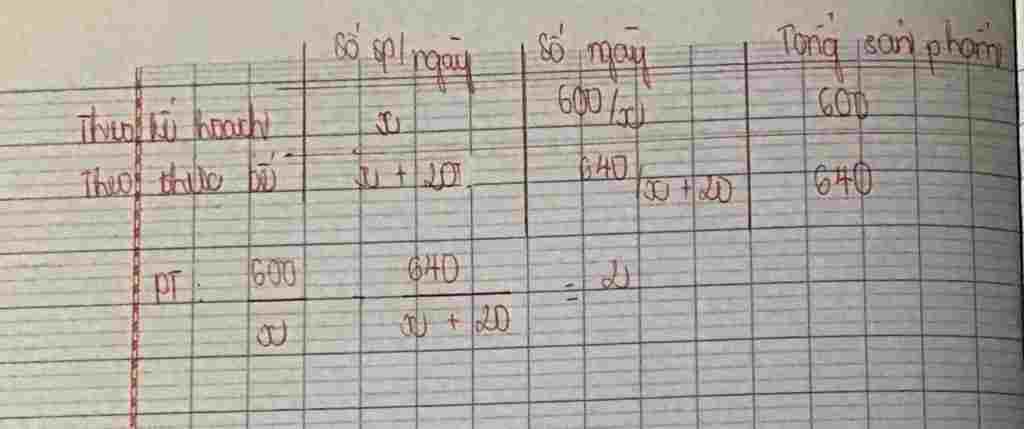 Số sp/ngày Số ngày Tổng sản phẩm
Theo kế hoạch x 600/x 600
Theo thực tế x + 20 640/x + 20 640
PT: 600/x - 640/x + 20 = 2